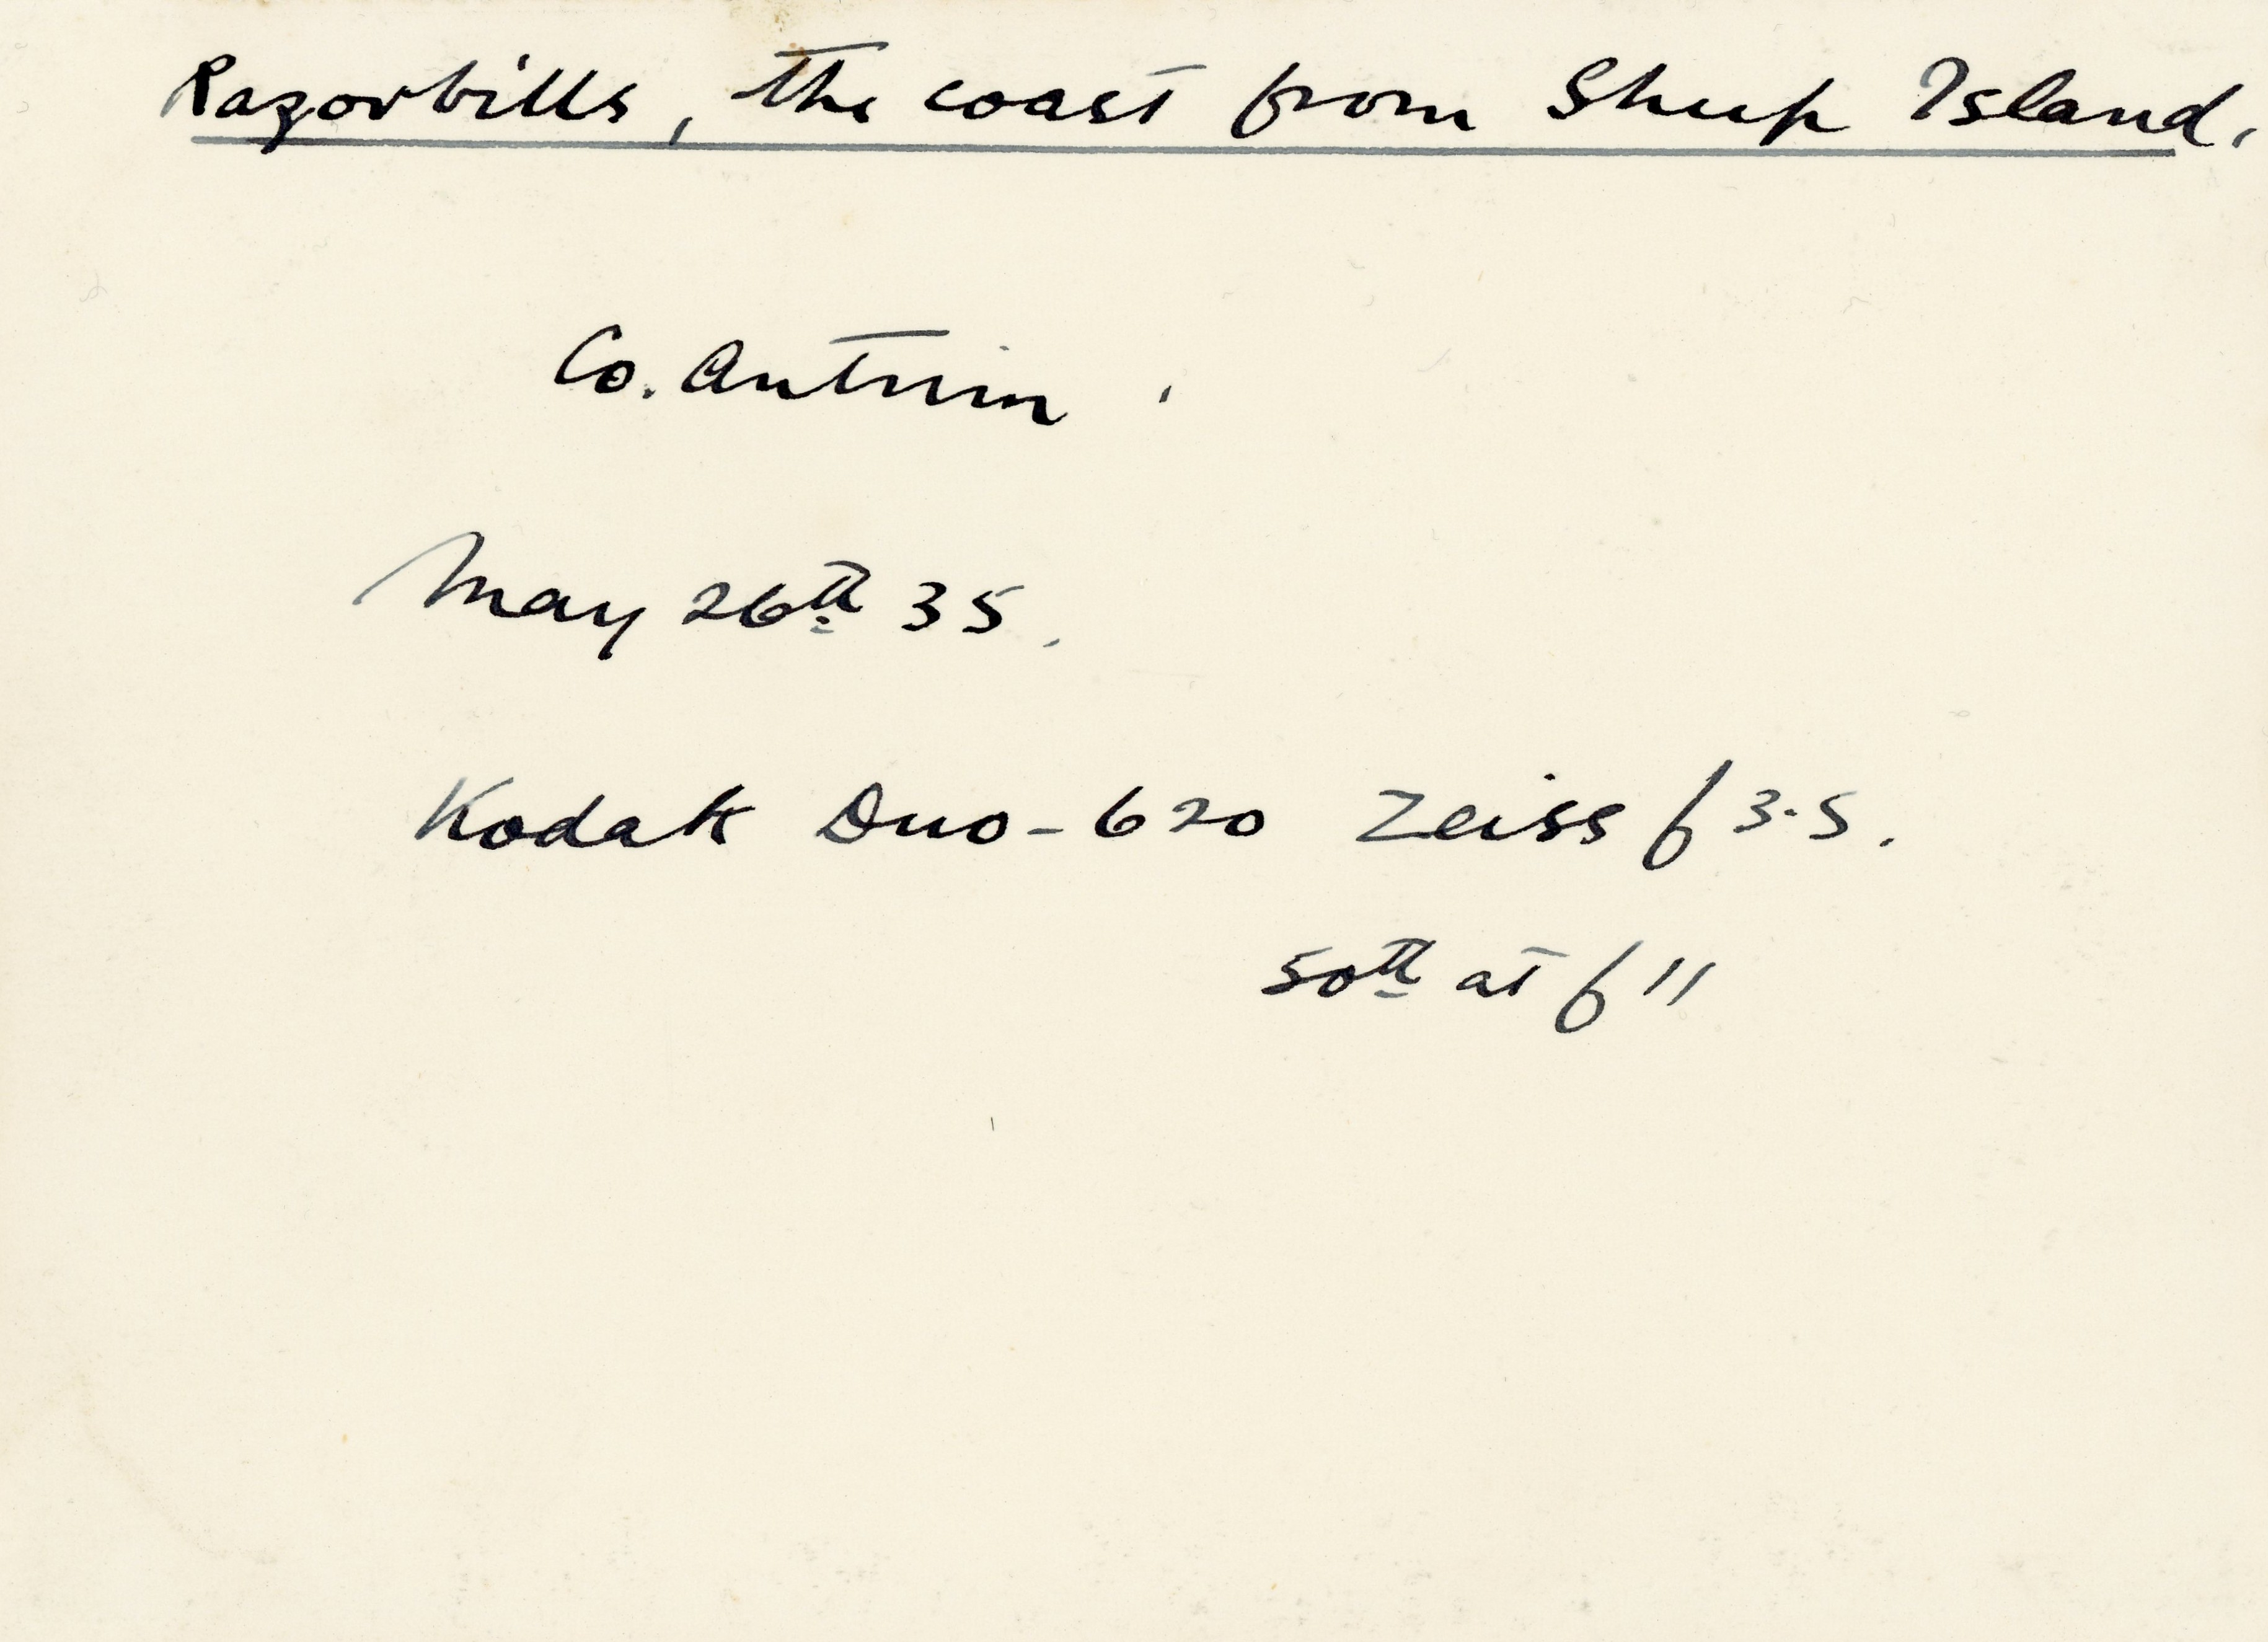 Razorbills, the coast from Sheep Island.
Co. Antrim.
May 26th 35.
Kodak Duo-620 Zeiss f 3.5.
50th at f 11